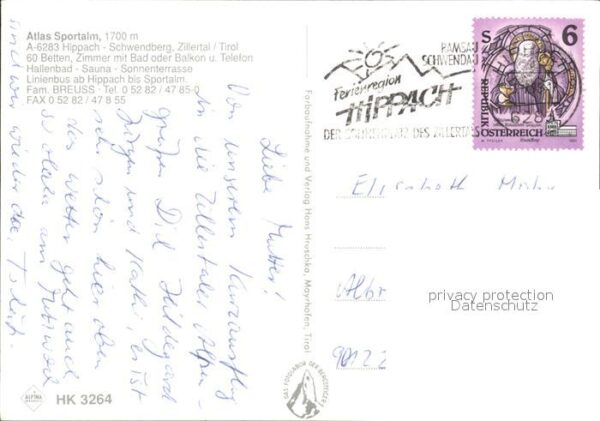 Atlas Sportalm, 1700 m
A-6283 Hippach - Schwendberg, Zillertal / Tirol
60 Betten, Zimmer mit Bad oder Balkon u. Telefon
Hallenbad - Sauna - Sonnenterrasse
Linienbus ab Hippach bis Sportalm.
Fam. BREUSS · Tel. 0 52 82 / 47 85-0
FAX 0 52 82 / 47 8 55
Liebe Mutter!
Von unserem Kurzausflug
in die Zillertaler Alpen
grüßen Dich Hildegard
Jürgen und Kathi, es ist
sehr schön hier oben
das Wetter geht auch
am Mittwoch
sind wir wieder da, Tschüß.
ALPINA
HK 3264
Farbaufnahme und Verlag Hans Hruschka, Mayrhofen, Tirol
RAMSAU
SCHWENDAU
Ferienregion
HIPPACH
DER SONNENPLATZ DES ZILLERTALS
S 6
REPUBLIK
ÖSTERREICH
Elisabeth
90122
privacy protection
Datenschutz